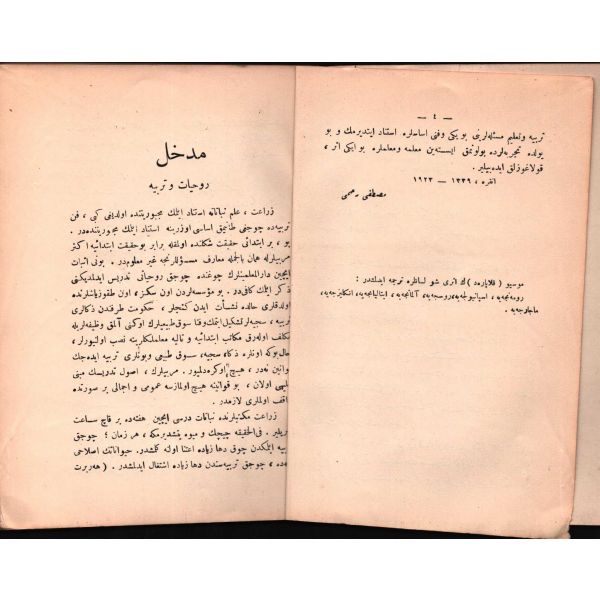 — ٤ —
تربیه و تعلیم مسئله‌لرینی بو یکی وفنی اساسلره استناد ایتدیرمك و بو
یولده تجربه‌لرده بولونمق ایسته‌ین معلمه ومعلملره بو ایکی اثر ،
قولاغوزلق ایده‌بیلیر.
آنقره ، ۱۳۳۹ — ۱۹۲۳
مصطفی رحمی
موسیو ( قلاپاره‌د ) ك اثری شو لسانلره ترجمه ایدلمشدر :
رومه‌نجه‌یه ، اسپانیولجه‌یه ، روسجه‌یه ، آلمانجه‌یه ، ایتالیانجه‌یه ، انکلیزجه‌یه ،
ماجارجه‌یه .
مدخل
روحیات و تربیه
زراعت ، علم نباتاته استناد ایتمك مجبوریتنده اولدیغی کبی ، فن
تربیه‌ده چوجغی طانیمق اساسی اوزرینه استناد ایتمك مجبوریتنده‌در.
بو ، بر ابتدائی حقیقت شکلنده اولمقله برابر بوحقیقت ابتدائیه اکثر
مربیلرله همان بالجمله معارف مسئوللرنجه غیر معلوم‌در . بونی اثبات
ایچین دارالمعلمینلرك چوغنده چوجق روحیاتی تدریس ایدلمدیکنی
ذکر ایتمك کافی‌در . بو مؤسسه‌لردن اون سکز ، اون طقوز یاشلرنده
اولدقلری حالده نشأت ایدن کنجلر ، حکومت طرفندن ذکالری
تربیه ، سجیه‌لر تشکیل ایتمك وقاسوق طبیعیلرك اوکنی آلمق وظیفه‌لریله
مکلف اوله‌رق مکاتب ابتدائیه و تالیه معلملکلرینه نصب اولنیورلر ،
حال‌بوکه اونلره ذکا ، سجیه ، سوق طبیعی وبونلری تربیه ایده‌جك
قوانین نه‌در ، هیچ اوکره‌دلمیور . مربیلرك ، اصول تدریسك مبنی
علیهی اولان ، بو قوانینه هیچ اولمازسه عمومی و اجمالی بر صورتده
واقف اولملری لازمدر .
زراعت مکتبلرنده نباتات درسی ایچین هفته‌ده بر قاچ ساعت
ویریلیر . فی‌الحقیقه چیچك و میوه یتشدیرمکه ، هر زمان ؛ چوجق
تربیه ایتمکدن چوق دها زیاده اعتنا اوله کلمشدر . حیواناتك اصلاحی
ایله‌ده ، چوجق تربیه‌سندن دها زیاده اشتغال ایدلمشدر . ( هه‌ربرت